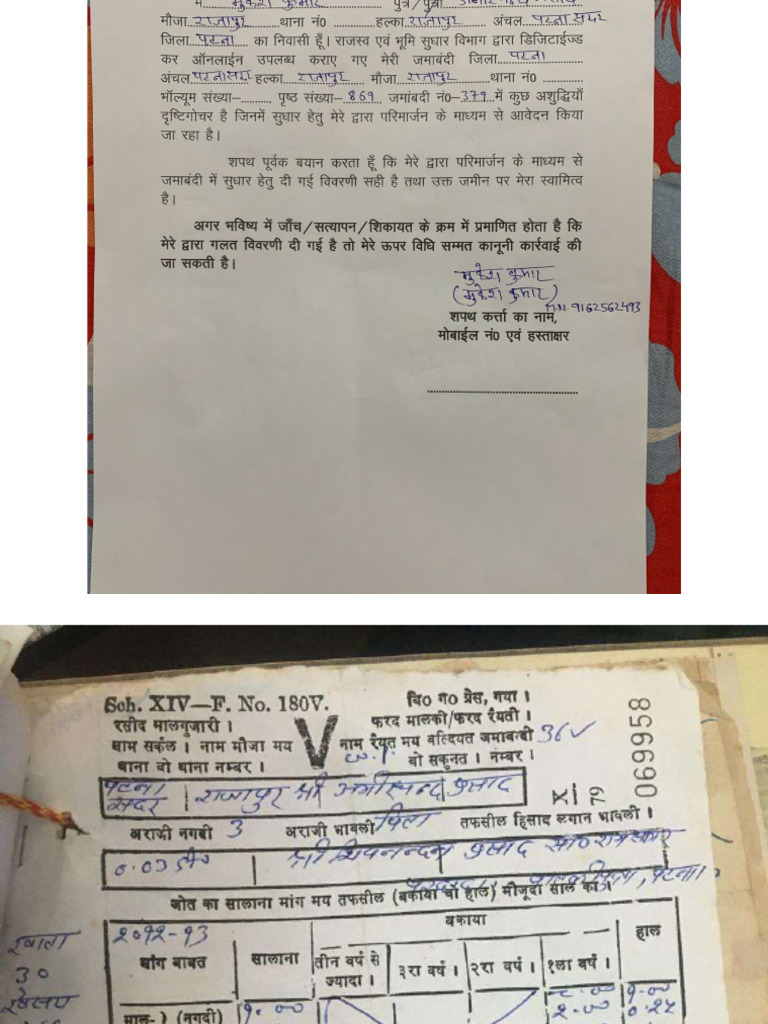 मैं मुकेश कुमार पुत्र/पुत्री
मौजा राजापुर थाना नं० हल्का राजापुर अंचल पटना सदर
जिला पटना का निवासी हूँ। राजस्व एवं भूमि सुधार विभाग द्वारा डिजिटाईज्ड
कर ऑनलाईन उपलब्ध कराए गए मेरी जमाबंदी जिला पटना
अंचल पटना सदर हल्का राजापुर मौजा राजापुर थाना नं०
भॉल्यूम संख्या– पृष्ठ संख्या– 869, जमांबदी नं०– 379 में कुछ अशुद्धियाँ
दृष्टिगोचर है जिनमें सुधार हेतु मेरे द्वारा परिमार्जन के माध्यम से आवेदन किया
जा रहा है।
शपथ पूर्वक बयान करता हूँ कि मेरे द्वारा परिमार्जन के माध्यम से
जमाबंदी में सुधार हेतु दी गई विवरणी सही है तथा उक्त जमीन पर मेरा स्वामित्व
है।
अगर भविष्य में जाँच/सत्यापन/शिकायत के क्रम में प्रमाणित होता है कि
मेरे द्वारा गलत विवरणी दी गई है तो मेरे ऊपर विधि सम्मत कानूनी कार्रवाई की
जा सकती है।
मुकेश कुमार
(मुकेश कुमार)
M.N. 9162562493
शपथ कर्त्ता का नाम,
मोबाईल नं० एवं हस्ताक्षर
Sch. XIV—F. No. 180V. बि० ग० प्रेस, गया।
रसीद मालगुजारी। फरद मालकी/फरद रैयती।
ग्राम सर्कल। नाम मौजा मय V नाम रैयत मय वल्दियत जमाबन्दी
थाना वो थाना नम्बर। वो सकुनत। नम्बर।
069958
XI
79
पटना सदर राजापुर श्री प्रसाद
अराजी नगदी 3 अराजी भावली पिता तफसील हिसाब लगान भावली।
श्री शिवनन्दन प्रसाद
पटना।
जोत का सालाना मांग मय तफसील (बकाया वो हाल) मौजूदा साल का।
२०१२-१३ बकाया हाल
मांग बाबत सालाना तीन वर्ष से ज्यादा। ३रा वर्ष। २रा वर्ष। १ला वर्ष।
30
माल-) (नगदी)